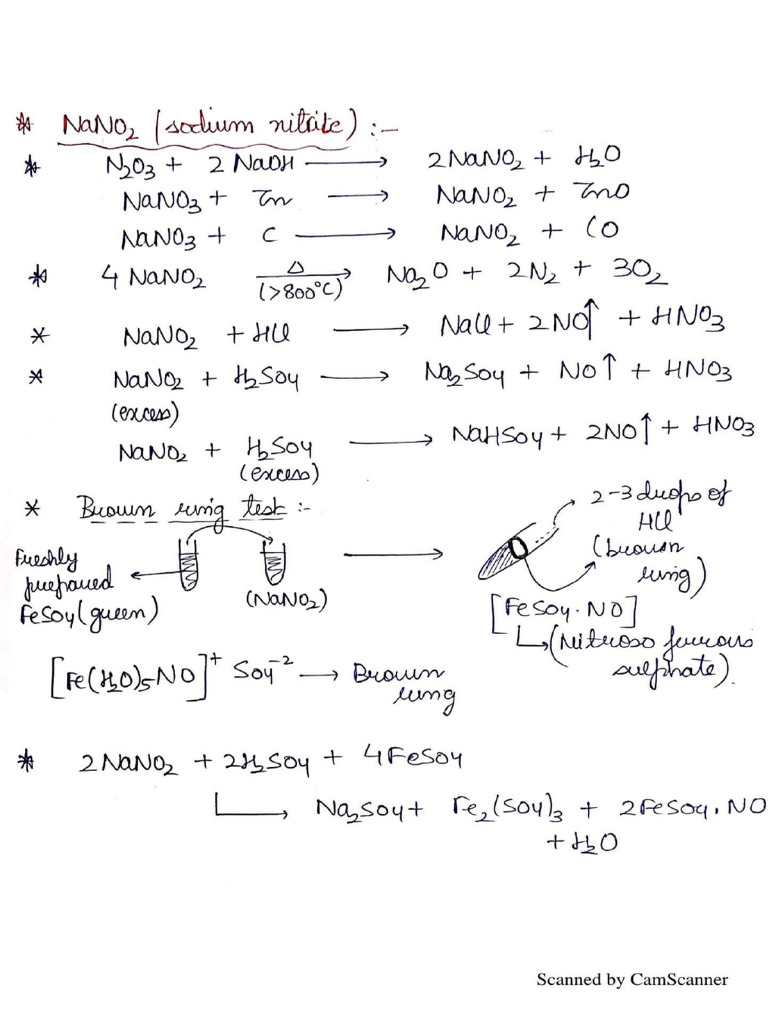 * NaNO2 (sodium nitrite) :-
* N2O3 + 2 NaOH → 2NaNO2 + H2O
NaNO3 + Zn → NaNO2 + ZnO
NaNO3 + C → NaNO2 + CO
* 4 NaNO2 Δ (>800°C) → Na2O + 2N2 + 3O2
* NaNO2 + HCl → NaCl + 2NO↑ + HNO3
* NaNO2 + H2SO4 → Na2SO4 + NO↑ + HNO3
(excess)
NaNO2 + H2SO4 → NaHSO4 + 2NO↑ + HNO3
(excess)
* Brown ring test :-
Freshly
prepared
FeSO4 (green)
(NaNO2)
2-3 drops of
HCl
(brown
ring)
[FeSO4·NO]
↳ (Nitroso ferrous
sulphate).
[Fe(H2O)5NO]+ SO4-2 → Brown
ring
* 2NaNO2 + 2H2SO4 + 4FeSO4
↳ Na2SO4 + Fe2(SO4)3 + 2FeSO4.NO
+ H2O
Scanned by CamScanner